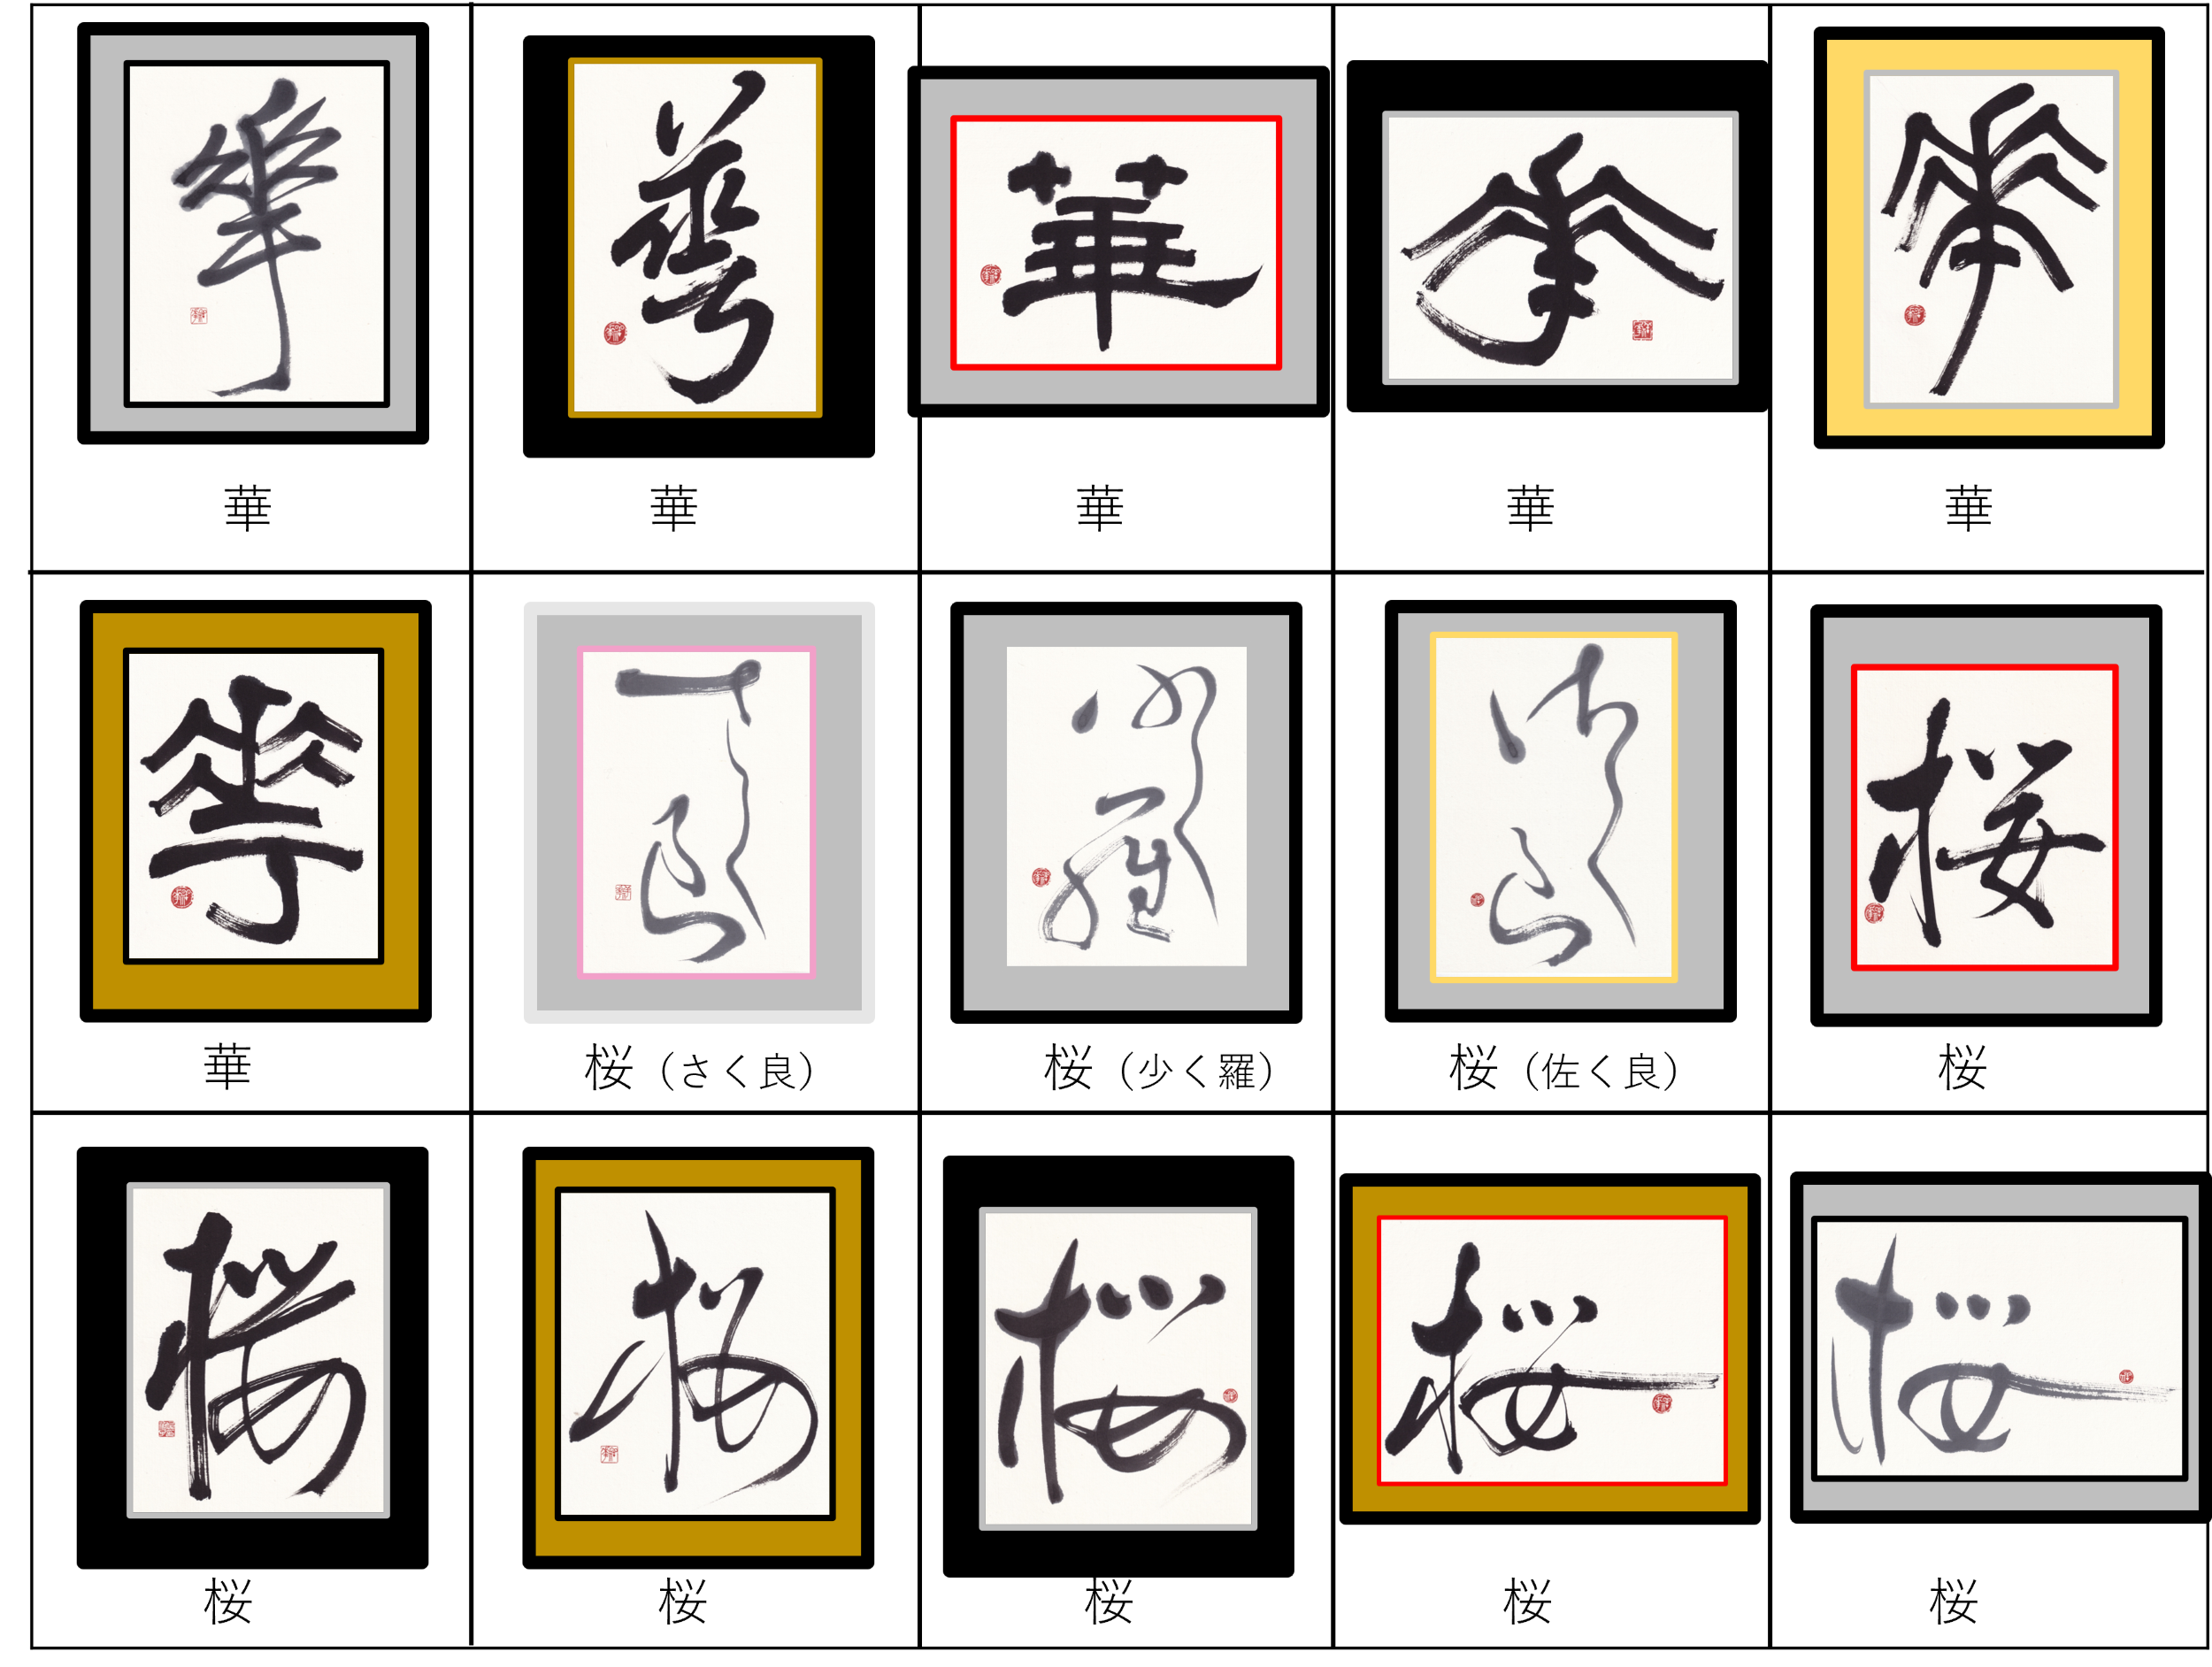 華 華 華 華 華
華 桜（さく良） 桜（少く羅） 桜（佐く良） 桜
桜 桜 桜 桜 桜